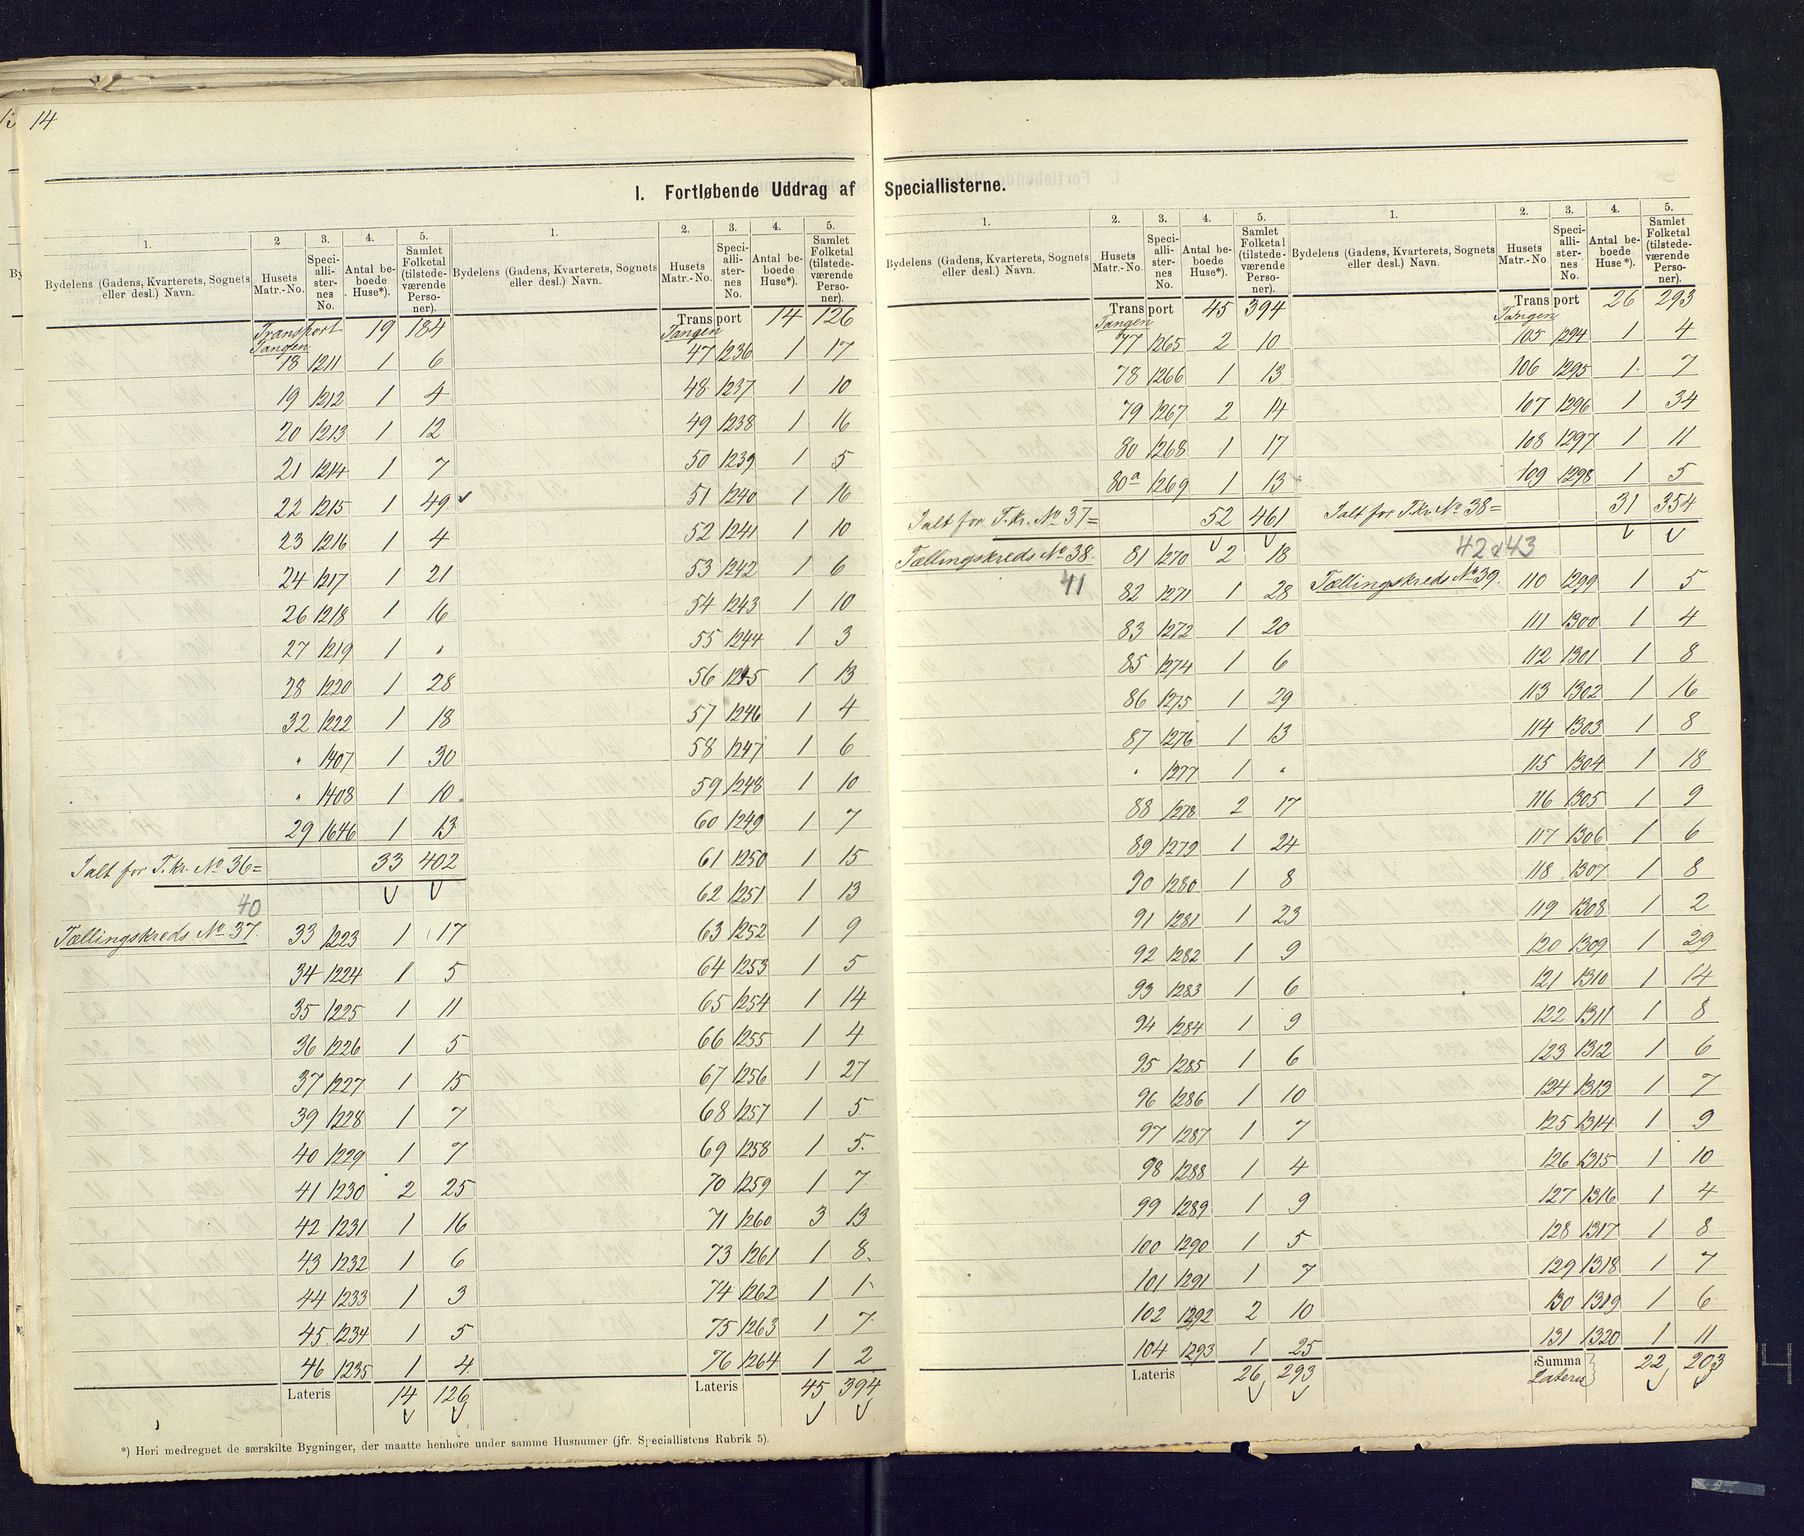 13 14.
I. Fortløbende Uddrag af Speciallisterne.
1. 2 3. 4. 5.
Bydelens (Gadens, Kvarterets, Sognets eller desl.) Navn. Husets Matr.-No. Speciallisternes No. Antal beboede Huse*). Samlet Folketal (tilstedeværende Personer).
Transport 19 184
Tangen
18 1211 1 6
19 1212 1 4
20 1213 1 12
21 1214 1 7
22 1215 1 49
23 1216 1 4
24 1217 1 21
26 1218 1 16
27 1219 1 "
28 1220 1 28
32 1222 1 18
" 1407 1 30
" 1408 1 10
29 1646 1 13
Ialt for T.kr. No 36= 33 402
40
Tællingskreds No 37. 33 1223 1 17
34 1224 1 5
35 1225 1 11
36 1226 1 5
37 1227 1 15
39 1228 1 7
40 1229 1 7
41 1230 2 25
42 1231 1 16
43 1232 1 6
44 1233 1 3
45 1234 1 5
46 1235 1 4
Lateris 14 126
1. 2. 3. 4. 5.
Bydelens (Gadens, Kvarterets, Sognets eller desl.) Navn. Husets Matr.-No. Speciallisternes No. Antal beboede Huse*). Samlet Folketal (tilstedeværende Personer).
Transport 14 126
Tangen
47 1236 1 17
48 1237 1 10
49 1238 1 16
50 1239 1 5
51 1240 1 16
52 1241 1 10
53 1242 1 6
54 1243 1 10
55 1244 1 3
56 1245 1 13
57 1246 1 4
58 1247 1 6
59 1248 1 10
60 1249 1 7
61 1250 1 15
62 1251 1 13
63 1252 1 9
64 1253 1 5
65 1254 1 14
66 1255 1 4
67 1256 1 27
68 1257 1 5
69 1258 1 5
70 1259 1 7
71 1260 3 13
73 1261 1 8
74 1262 1 1
75 1263 1 7
76 1264 1 2
Lateris 45 394
*) Heri medregnet de særskilte Bygninger, der maatte henhøre under samme Husnumer (jfr. Speciallistens Rubrik 5).
1. 2. 3. 4. 5.
Bydelens (Gadens, Kvarterets, Sognets eller desl.) Navn. Husets Matr.-No. Speciallisternes No. Antal beboede Huse*). Samlet Folketal (tilstedeværende Personer).
Transport 45 394
Tangen
77 1265 2 10
78 1266 1 13
79 1267 2 14
80 1268 1 17
80a 1269 1 13
Ialt for T.kr. No 37= 52 461
Tællingskreds No 38. 81 1270 2 18
41 82 1271 1 28
83 1272 1 20
85 1274 1 6
86 1275 1 29
87 1276 1 13
" 1277 1 "
88 1278 2 17
89 1279 1 24
90 1280 1 8
91 1281 1 23
92 1282 1 9
93 1283 1 6
94 1284 1 9
95 1285 1 6
96 1286 1 10
97 1287 1 7
98 1288 1 4
99 1289 1 9
100 1290 1 5
101 1291 1 7
102 1292 2 10
104 1293 1 25
Lateris 26 293
1. 2. 3. 4. 5.
Bydelens (Gadens, Kvarterets, Sognets eller desl.) Navn. Husets Matr.-No. Speciallisternes No. Antal beboede Huse*). Samlet Folketal (tilstedeværende Personer).
Transport 26 293
Tangen
105 1294 1 4
106 1295 1 7
107 1296 1 34
108 1297 1 11
109 1298 1 5
Ialt for T.kr. No 38= 31 354
42 & 43
Tællingskreds No 39. 110 1299 1 5
111 1300 1 4
112 1301 1 8
113 1302 1 16
114 1303 1 8
115 1304 1 18
116 1305 1 9
117 1306 1 6
118 1307 1 8
119 1308 1 2
120 1309 1 29
121 1310 1 14
122 1311 1 8
123 1312 1 6
124 1313 1 7
125 1314 1 9
126 1315 1 10
127 1316 1 4
128 1317 1 8
129 1318 1 7
130 1319 1 6
131 1320 1 11
Summa
Lateris 22 203